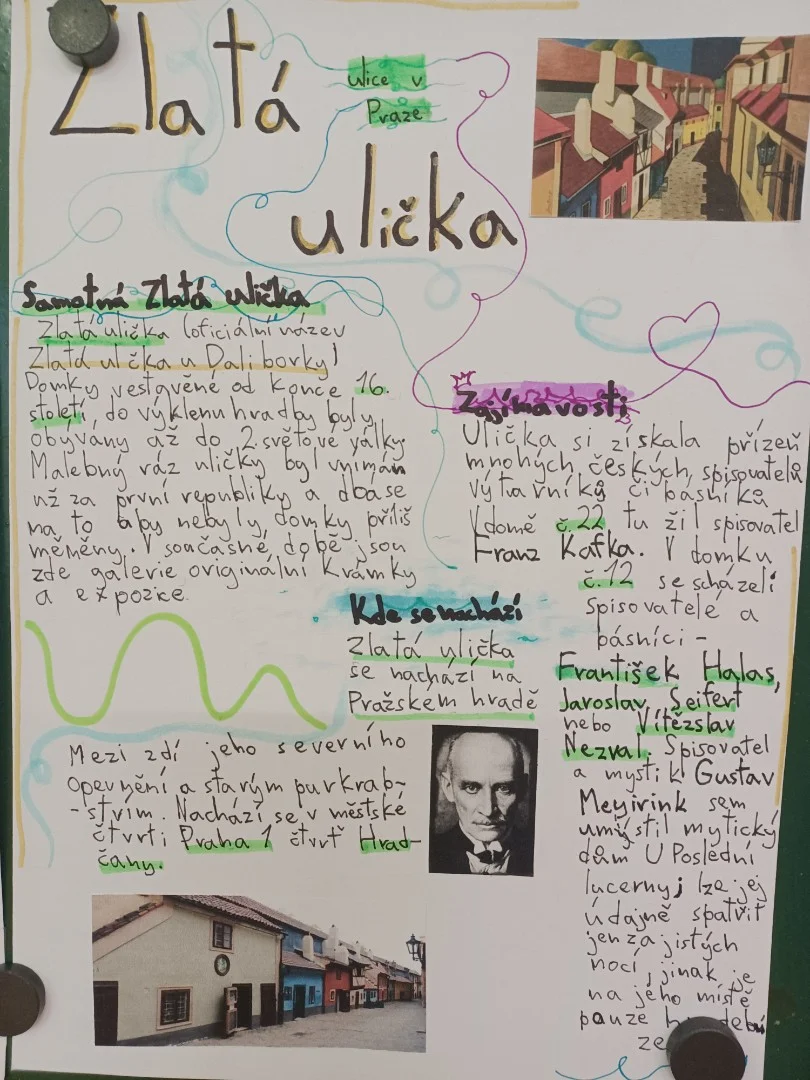 Zlatá
ulice v
Praze
ulička
Samotná Zlatá ulička
Zlatá ulička (oficiální název
Zlatá ulčka u Daliborky)
Domky vestavěné od konce 16.
století, do výklenu hradby byly
obývány až do 2. světové války.
Malebný ráz uličky byl vnímán
už za první republiky a dbase
na to aby nebyly domky příliš
měměny. V současné době jsou
zde galerie originální krámky
a expozice.
Zajímavosti
Ulička si získala přízeň
mnohých českých spisovatelů
výtvarníků či básníků
V domě č.22 tu žil spisovatel
Franz Kafka. V domku
č.12 se scházeli
spisovatelé a
básníci -
František Halas,
Jaroslav Seifert
nebo Vítězslav
Nezval. Spisovatel
a mystik Gustav
Meyirink sem
umýstil mytický
dům U Poslední
lucerny; lze jej
údajně spatřit
jen za jistých
nocí, jinak je
na jeho místě
pouze
ze
Kde se nachází
Zlatá ulička
se nachází na
Pražském hradě
Mezi zdí jeho severního
opevnění a starým purkrab-
-stvím. Nachází se v městské
čtvrti Praha 1 čtvrť Hrad-
čany.